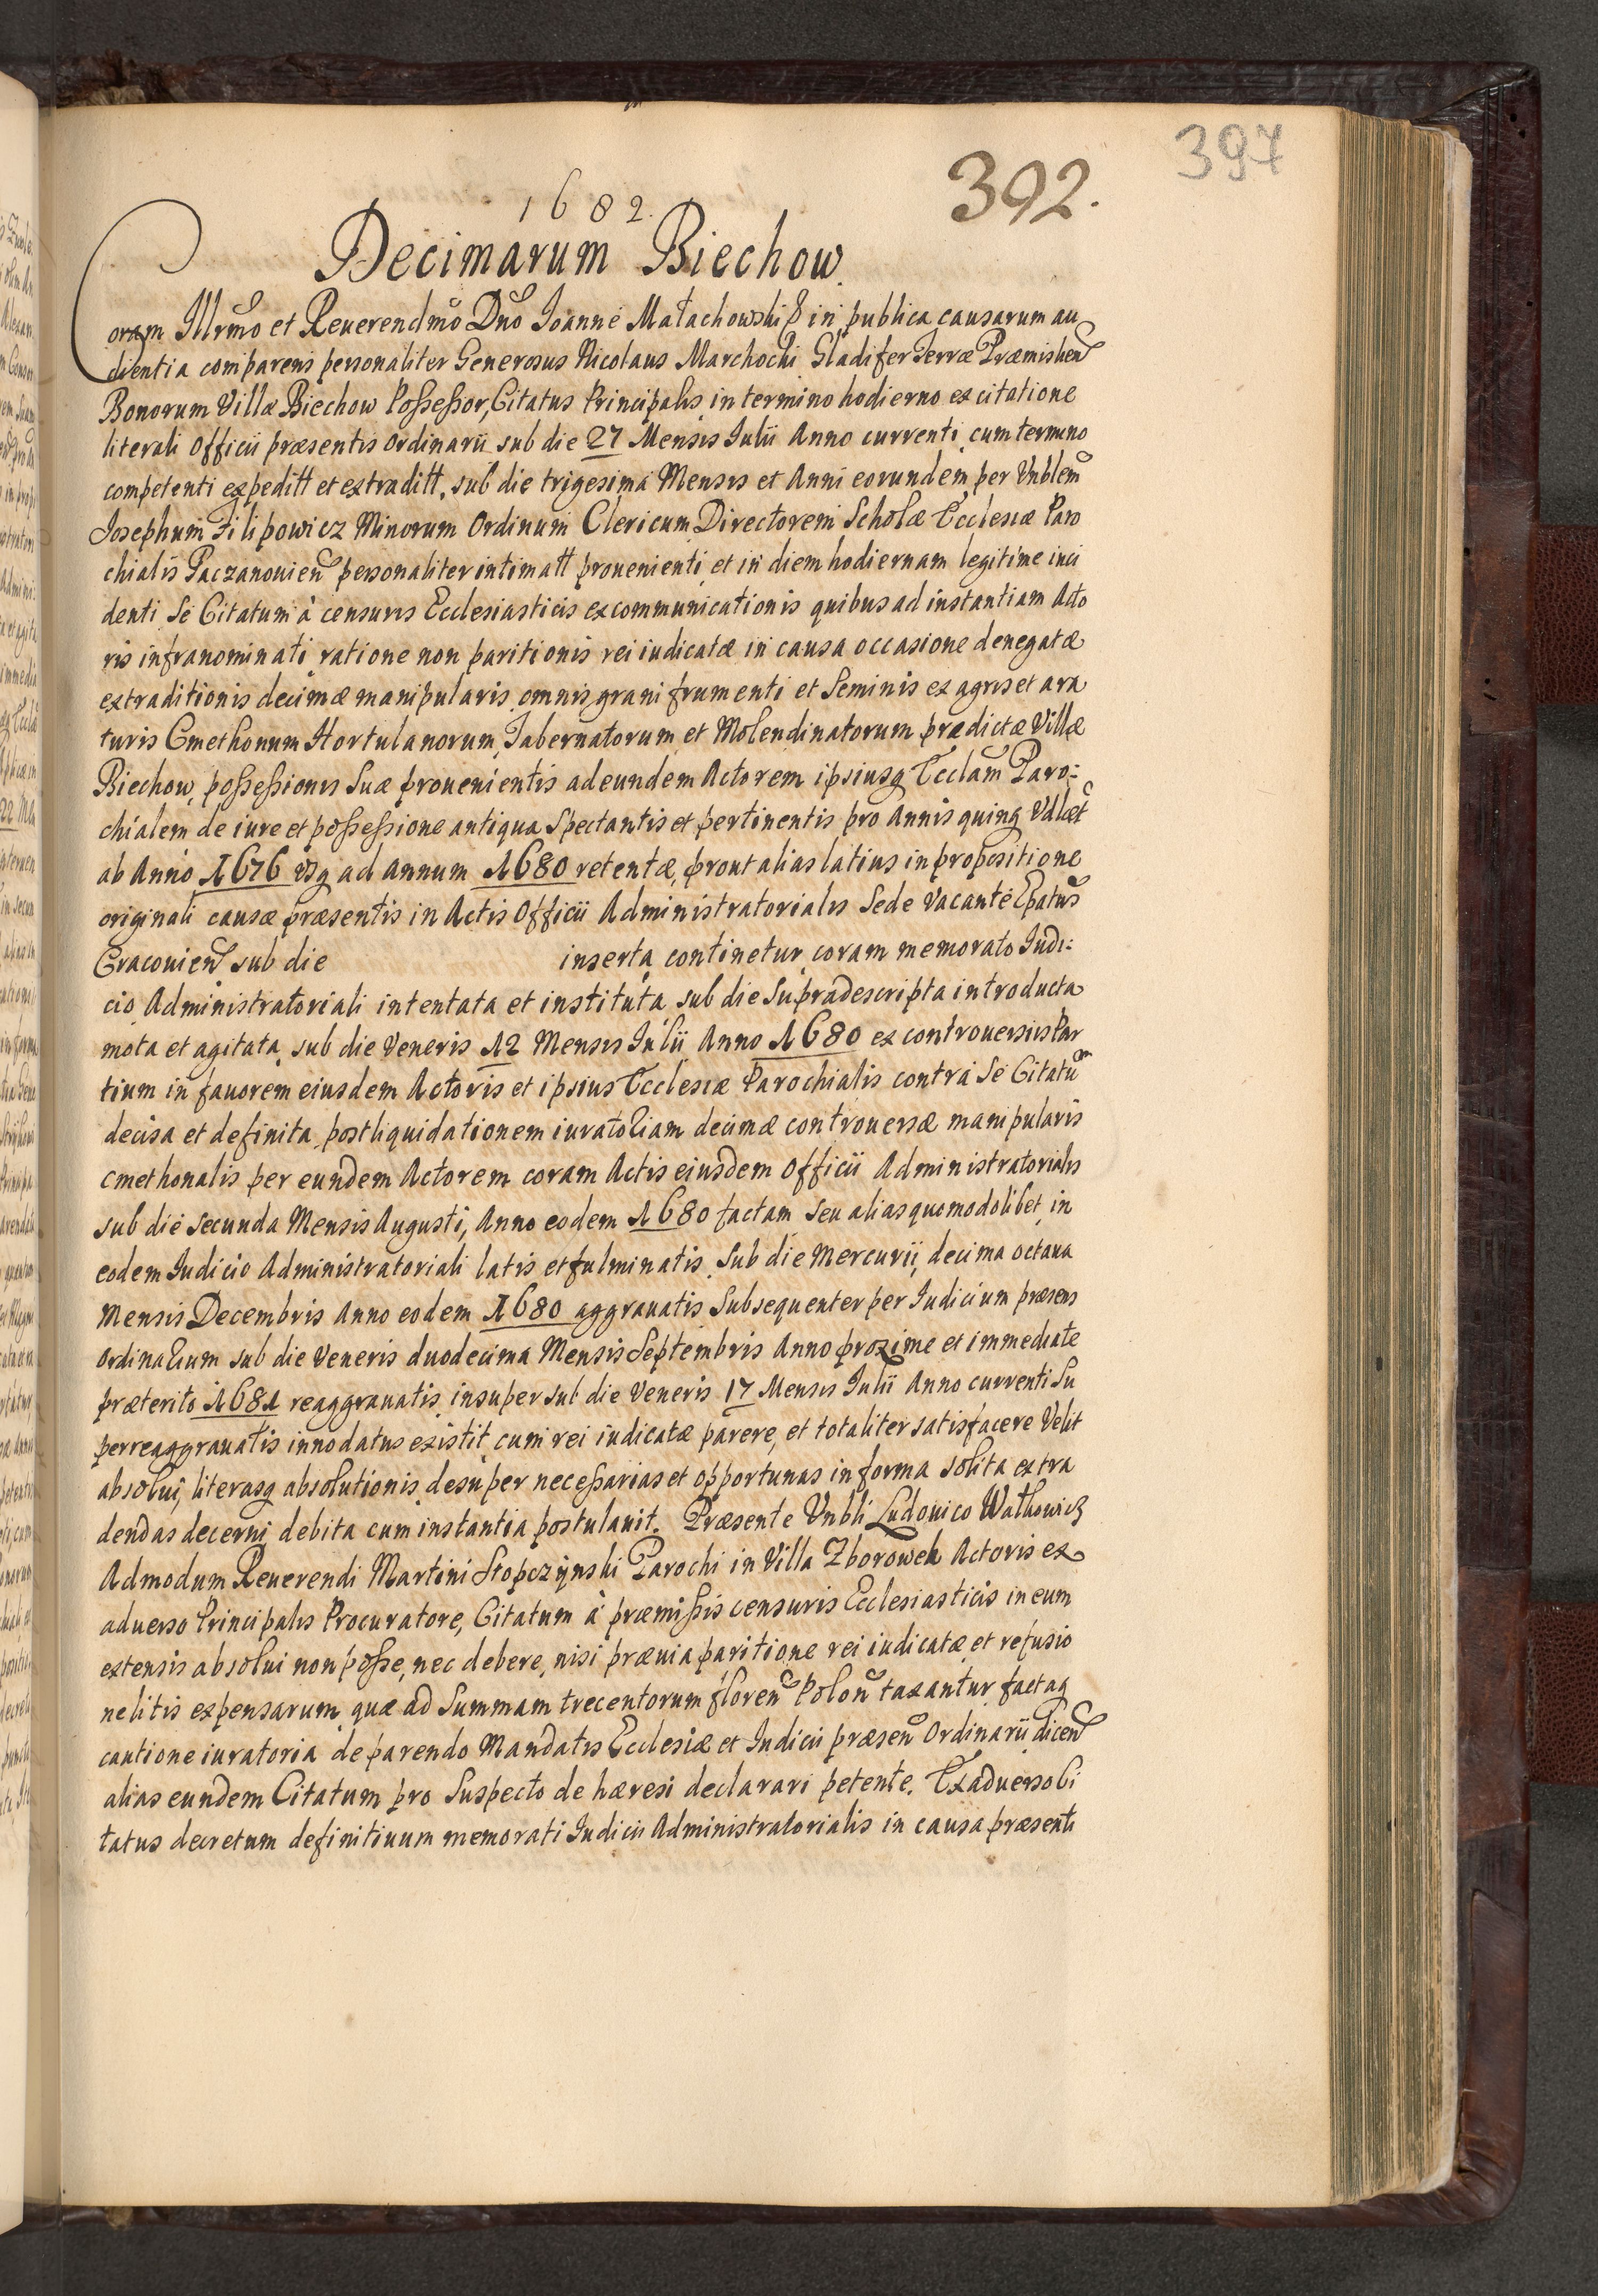 397
392.
1682.
Decimarum Biechow.
Coram Illrmo et Reuerendmo Dno Joanne Małachowski in publica causarum au
dientia comparens personaliter Generosus Nicolaus Marchocki Gladifer Terræ Præmislien
Bonorum Villæ Biechow Possessor, Citatus Principalis in termino hodierno ex citatione
literali Officii præsentis Ordinarii sub die 27 Mensis Iulii Anno currenti cum termino
competenti expeditt et extraditt, sub die trigesima Mensis et Anni eorundem per Vnblem
Josephum Filipowicz Minorum Ordinum Clericum Directorem Scholæ Ecclesiæ Paro
chialis Paczanouien personaliter intimatt prouenienti et in diem hodiernam legitime inci
denti Se Citatum à censuris Ecclesiasticis excommunicationis quibus ad instantiam Acto
ris infranominati ratione non paritionis rei iudicatæ in causa occasione denegatæ
extraditionis decimæ manipularis omnis grani frumenti et Seminis ex agris et ara
turis Cmethonum Hortulanorum, Tabernatorum et Molendinatorum prædictæ Villæ
Biechow, possessionis Suæ prouenientis ad eundem Actorem ipsiusq Ecclam Paro:
chialem de iure et possessione antiqua Spectantis et pertinentis pro Annis quinq Vdlæt
ab Anno 1676 vsq ad annum 1680 retentæ, prout alias latius in propositione
originali causæ præsentis in Actis Officii Administratorialis Sede Vacante Epatus
Cracouien sub die inserta continetur coram memorato Iudi:
cio Administratoriali intentata et instituta sub die Supradescripta introducta
mota et agitata sub die Veneris 12 Mensis Iulii Anno 1680 ex controuersiis Par
tium in fauorem eiusdem Actoris et ipsius Ecclesiæ Parochialis contra Se Citatum
decisa et definita post liquidationem iuratoriam decimæ controuersæ manipularis
cmethonalis per eundem Actorem coram Actis eiusdem Officii Administratorialis
sub die secunda Mensis Augusti, Anno eodem 1680 factam seu alias quomodolibet in
eodem Iudicio Administratoriali latis et fulminatis. Sub die Mercurii decima octaua
Mensis Decembris Anno eodem 1680 aggrauatis Subsequenter per Iudicium præsens
Ordinarium sub die Veneris duodecima Mensis Septembris Anno proxime et immediate
præterito 1681 reaggrauatis insuper sub die Veneris 17 Mensis Iulii Anno currenti Su
perreaggrauatis innodatus existit cum rei iudicatæ parere, et totaliter satisfacere Velit
absolui, literasq absolutionis desuper necessarias et opportunas in forma solita extra
dendas decerni debita cum instantia postulauit. Præsente Vnbli Ludouico Wathowicz
Admodum Reuerendi Martini Stopczynski Parochi in Villa Zborowek Actoris ex
aduerso Principalis Procuratore, Citatum à præmissis censuris Ecclesiasticis in eum
extensis absolui non posse, nec debere, nisi præuia paritione rei iudicatæ et refusio
ne litis expensarum quæ ad Summam trecentorum floren Polon taxantur factaq
cautione iuratoria de parendo Mandatis Ecclesiæ et Iudicii præsen Ordinarii dicen
alias eundem Citatum pro Suspecto de hæresi declarari petente. Ex aduerso Ci
tatus decretum definitiuum memorati Iudicii Administratorialis in causa præsenti